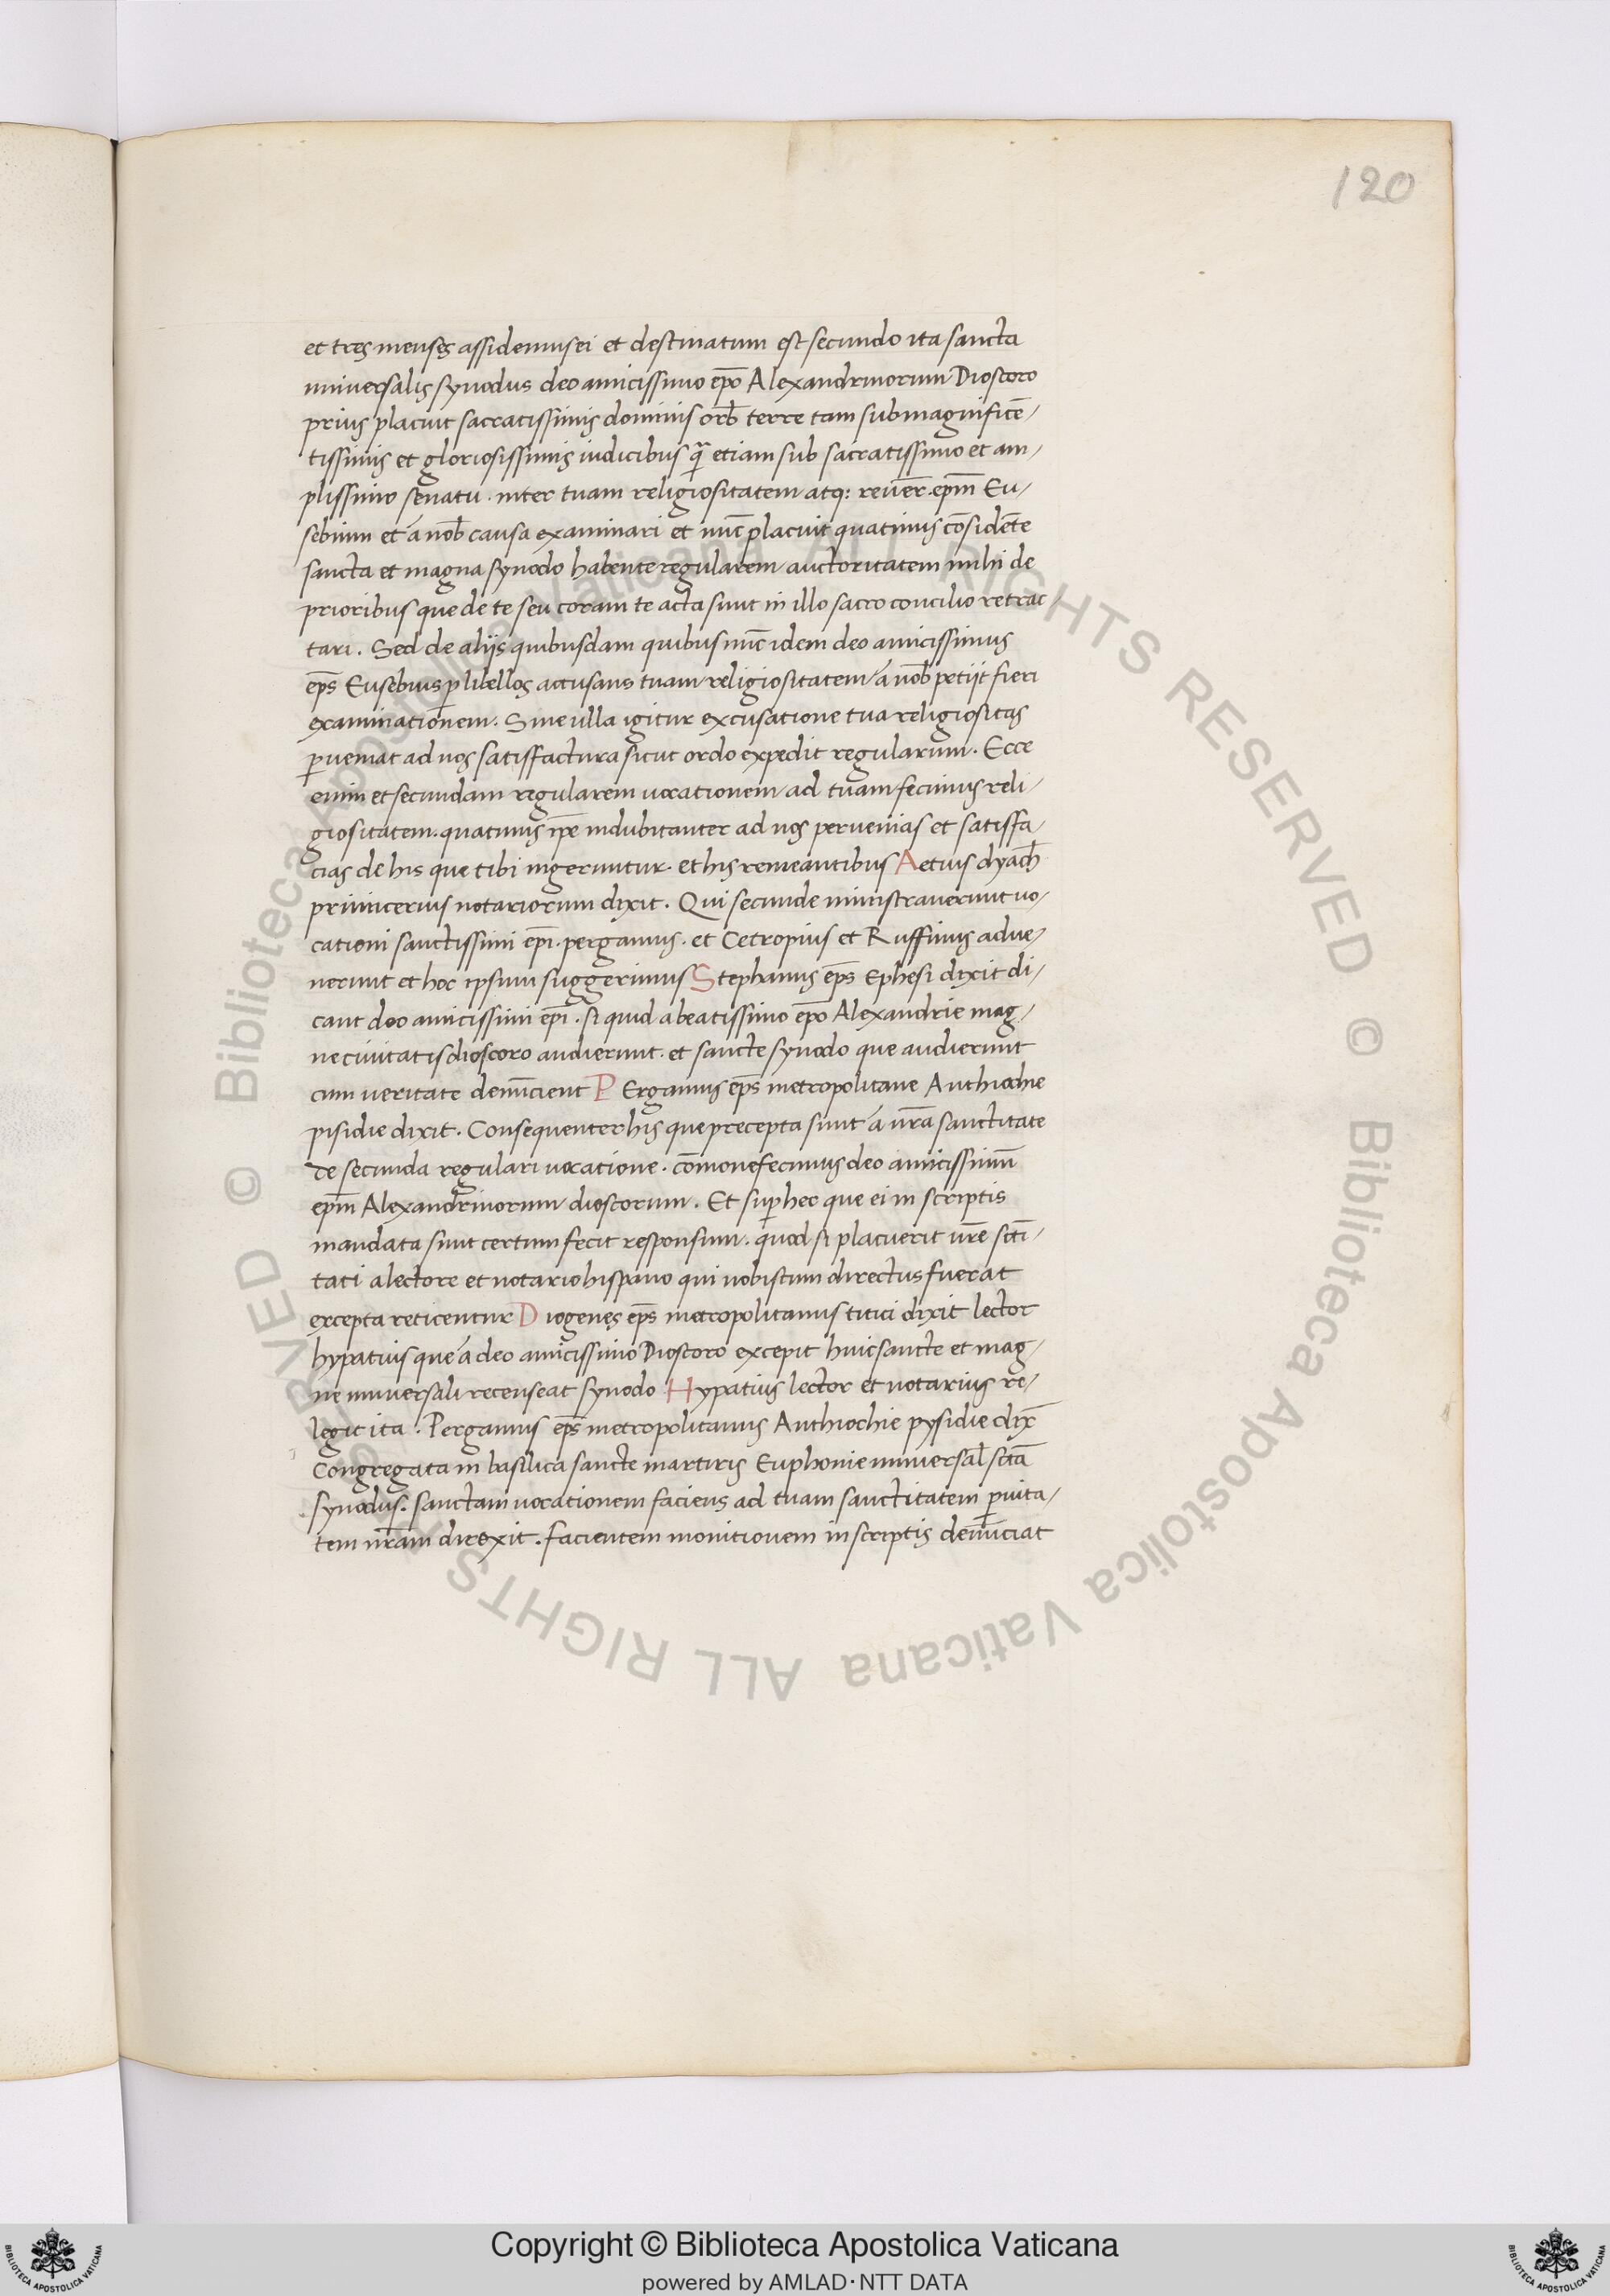 120
et tres menses assidemus ei et destinatum est secundo ita sancta
universalis synodus deo amicissimo ep̄o Alexandrinorum Dioscoro
prius placuit sacratissimis dominis orƀ terre tam sub magnificē/
tissimis et gloriosissimis iudicibus q̄ etiam sub sacratissimo et am/
plissimo senatu. inter tuam religiositatem atq: reuer̄. ep̄m Eu/
sebium et á noƀ causa examinari et nūc placuit quatinus cōsidēte
sancta et magna synodo habente regularem auctoritatem nihi de
prioribus que de te seu coram te acta sunt in illo sacro concilio retrac/
tari. Sed de alijs quibusdam quibus nūc idem deo amicissimus
ep̄s Eusebius ꝑ libellos accusans tuam religiositatem á noƀ petijt fieri
examinationem. Sine ulla igitur excusatione tua religiositas
ꝑueniat ad nos satisfactura sicut ordo expedit regularum. Ecce
enim et secundam regularem uocationem ad tuam fecimus reli/
giositatem. quatinus īp̄e indubitanter ad nos pervenias et satisfa/
cias de his que tibi ingeruntur. et his remeantibus Aetius dyach̄
primicerius notariorum dixit. Qui secunde ministraverunt uo/
cationi sanctissimi ep̄i. pergamus. et Cetropius et Ruffinus adve/
nerunt et hoc ipsum suggerimus Stephanus ep̄s Ephesi dixit di/
cant deo amicissimi ep̄i. si quid a beatissimo ep̄o Alexandrie mag/
ne civitatis dioscoro audierunt. et sancte synodo que audierunt
cum ueritate denūcient PErgamus ep̄s metropolitane Anthiochie
pisidie dixit. Consequenter his que precepta sunt á ur̄a sanctitate
de secunda regulari uocatione. cōmonefecimus deo amicissimū
ep̄m Alexandrinorum dioscorum. Et suꝑ hec que ei in scriptis
mandata sunt certum fecit responsum. quod si placuerit ur̄e scti̅/
tati a lectore et notario hispano qui nobiscum directus fuerat
excepta reticentur Diogenes ep̄s metropolitanus titici dixit lector
hypatius que á deo amicissimo Dioscoro excepit huic sancte et mag/
ne universali recenseat synodo Hypatius lector et notarius re/
legit ita. Pergamus ep̄s metropolitanus Anthiochie pysidie dix̄
Congregata in basilica sancte martiris Euphonie universaƚ sctā
synodus. sanctam uocationem faciens ad tuam sanctitatem ꝑuita/
tem nr̄am direxit. facientem monitionem in scriptis denūciat
© Biblioteca Apostolica Vaticana ALL RIGHTS RESERVED © Biblioteca Apostolica Vaticana ALL RIGHTS RESERVED
Copyright © Biblioteca Apostolica Vaticana
powered by AMLAD·NTT DATA
BIBLIOTECA APOSTOLICA VATICANA
BIBLIOTECA APOSTOLICA VATICANA